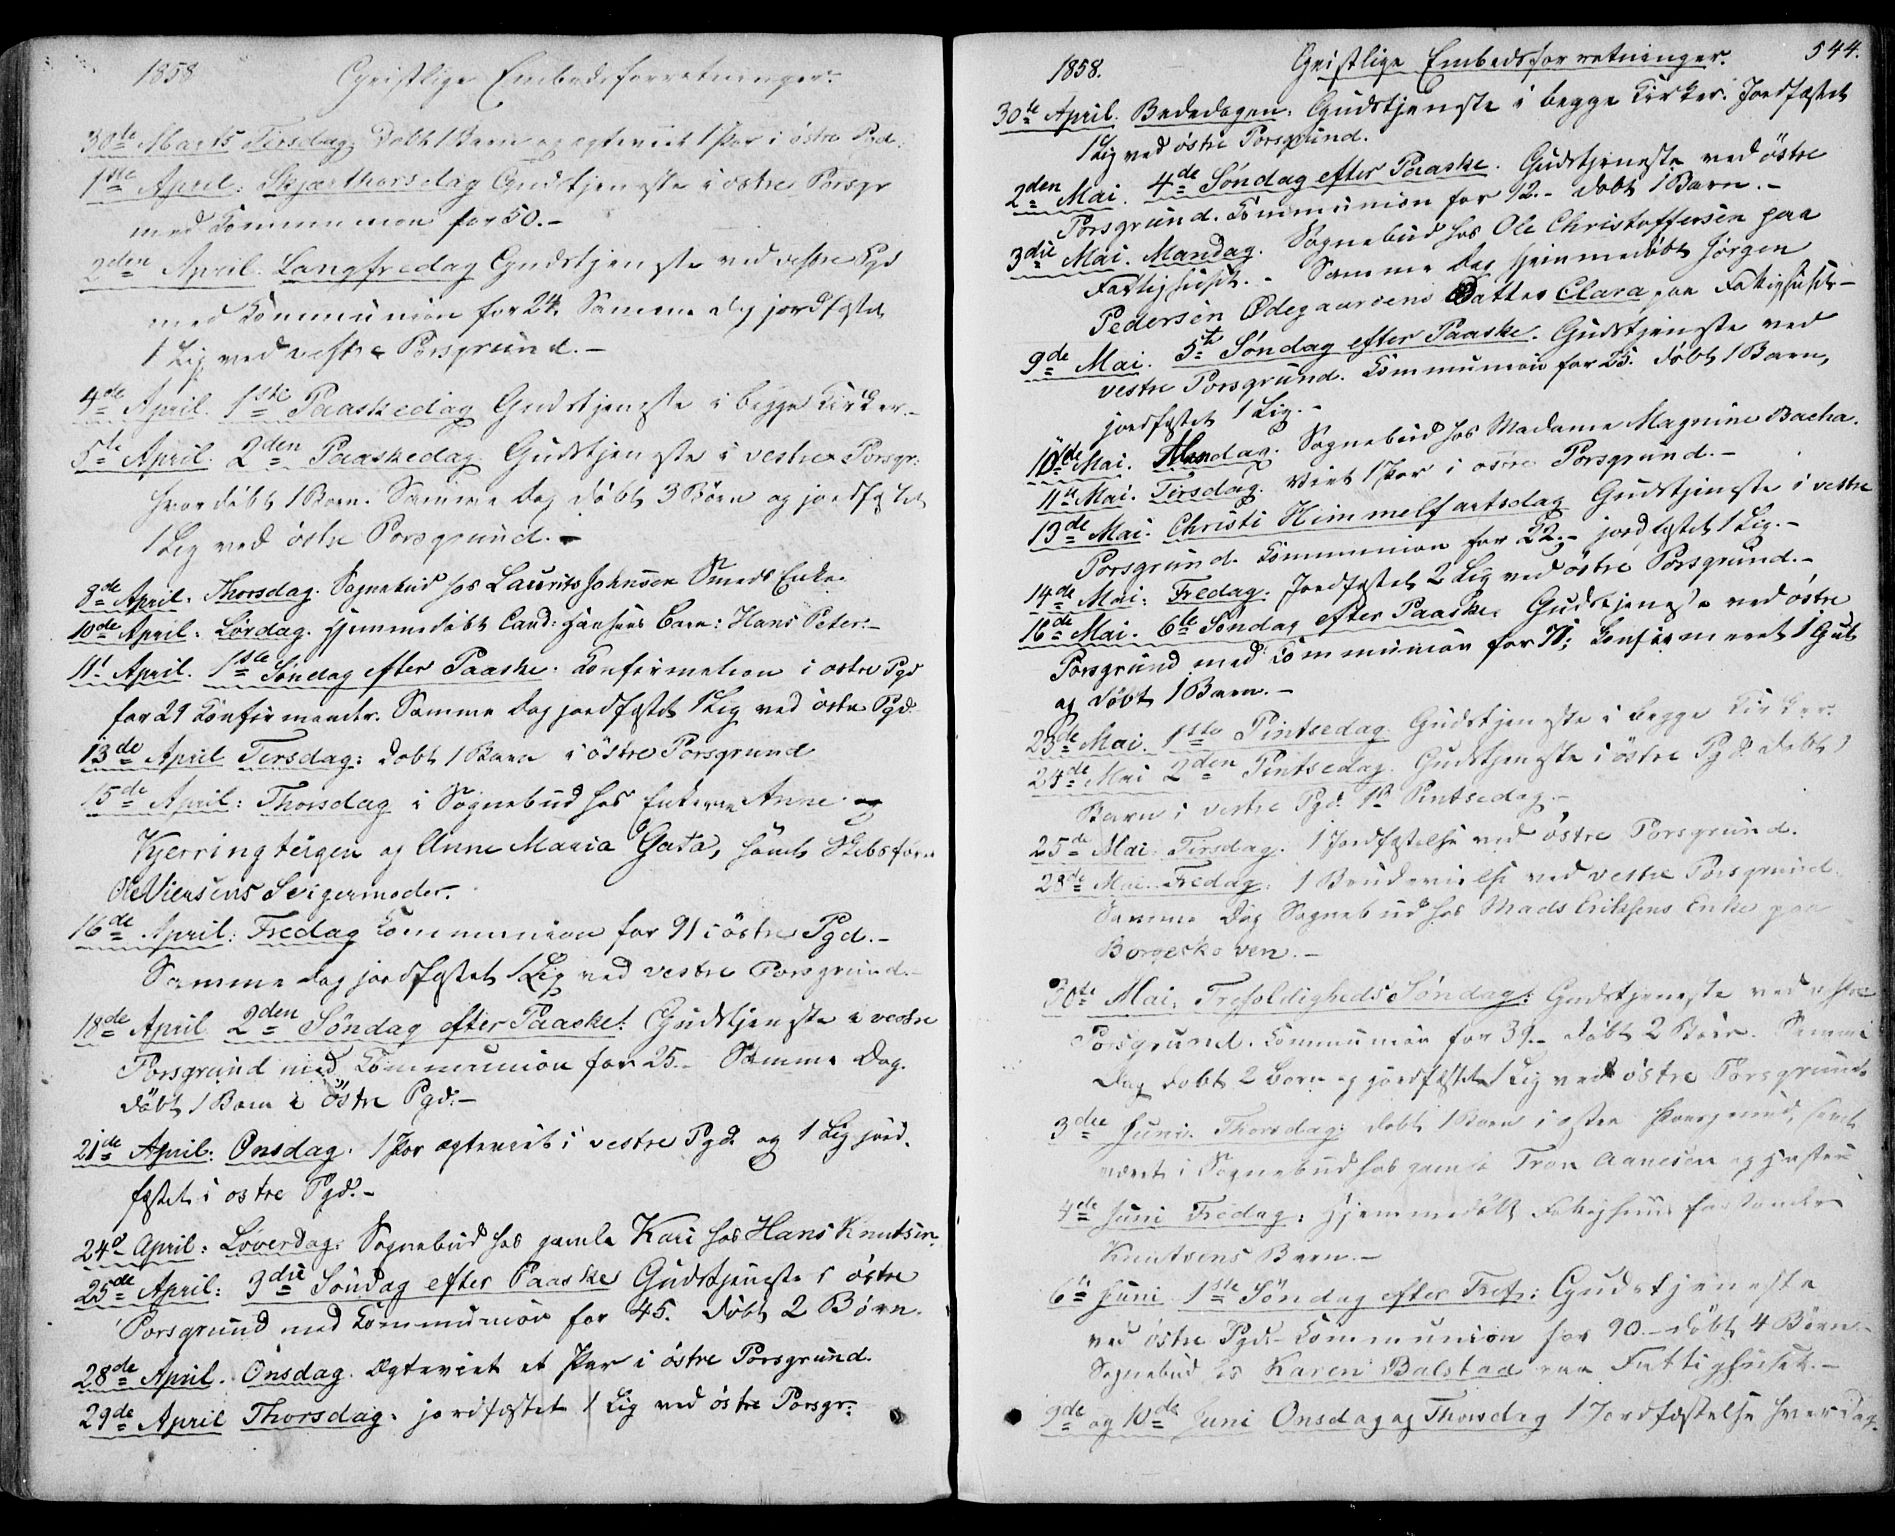 1858 Geistlige Embedsforretninger.
30te Marts Tirsdag: Døbt 1 Barn og ægteviet 1 Par i østre Pgd.
1ste April: Skjærthorsdag Gudstjeneste i østre Porsgr
med Communion for 50.-
2den April. Langfredag Gudstjeneste ved vestre Pgd
med Communion for 24. Samme Dag jordfæstet
1 Lig ved vestre Porsgrund.-
4de April. 1ste Paaskedag Gudstjeneste i begge Kirker.-
5te April. 2den Paaskedag Gudstjeneste i vestre Porsgr:
hvor døbt 1 Barn. Samme Dag døbt 3 Børn og jordfæstet
1 Lig ved østre Porsgrund.-
8de April. Thorsdag. Sognebud hos Laurits Johnsen Smeds Enke.
10de April. Lørdag. Hjemmedøbt Cand: Hansens Barn: Hans Peter.-
11t April. 1ste Søndag efter Paaske. Confirmation i østre Pgd
for 29 Confirmander. Samme Dag jordfæstet 1 Lig ved østre Pgd.
13de April Tirsdag: døbt 1 Barn i østre Porsgrund
15de April: Thorsdag i Sognebud hos Enkerne Anne og
Kjerringteigen og Anne Maria Gata, samt Skibsfører
Svigermoder.
16de April: Fredag Communion for 91 i østre Pgd.-
Samme Dag jordfæstet 1 Lig ved vestre Porsgrund.-
18de April 2den Søndag efter Paaske: Gudstjeneste i vestre
Porsgrund med Communion for 25.- Samme Dag.
døbt 1 Barn i østre Pgd.-
21de April: Onsdag. 1 Par ægteviet i vestre Pgd. og 1 Lig jord-
fæstet i østre Pgd.-
24d April: Løverdag: Sognebud hos gamle Kari hos Hans Knutsen.
25de April: 3die Søndag efter Paaske Gudstjeneste i østre
Porsgrund med Communion for 45. døbt 2 Børn.
28de April. Onsdag. Ægteviet et Par i østre Porsgrund.
29de April Thorsdag. jordfæstet 1 Lig ved østre Porsgr:
1858. Geistlige Embedsforretninger. 544.
30te April. Bededagen. Gudstjeneste i begge Kirker. Jordfæstet
1 Lig ved østre Porsgrund.
2den Mai. 4de Søndag efter Paaske. Gudstjeneste ved østre
Porsgrund. Communion for 12.- døbt 1 Barn.-
3die Mai. Mandag. Sognebud hos Ole Christoffersen paa
Fattighuset.- Samme Dag hjemmedøbt Jørgen
Pedersen Ødegaardens Datter Clara paa Fattighuset-
9de Mai. 5te Søndag efter Paaske. Gudstjeneste ved
vestre Porsgrund. Communion for 25. døbt 1 Barn,
jordfæstet 1 Lig.-
10de Mai. Mandag. Sognebud hos Madame Magnine Bacha.
11te Mai. Tirsdag. Viet 1 Par i østre Porsgrund.-
13de Mai. Christi Himmelfartsdag Gudstjeneste i vestre
Porsgrund. Communion for 22.- jordfæstet 1 Lig.-
14de Mai: Fredag. Jordfæstet 2 Lig ved østre Porsgrund.-
16de Mai. 6te Søndag efter Paaske. Gudstjeneste ved østre
Porsgrund med Communion for 71; Confirmeret 1 Gut
og døbt 1 Barn.-
23de Mai. 1ste Pintsedag. Gudstjeneste i begge Kirker.
24de Mai 2den Pintsedag. Gudstjeneste i østre Pgd. døbt 1
Barn i vestre Pgd. 1ste Pintsedag.-
25de Mai. Tirsdag. 1 Jordfæstelse ved østre Porsgrund.
28de Mai. Fredag. 1 Brudevielse ved vestre Porsgrund.
Samme Dag Sognebud hos Mads Eriksens Enke paa
Borgeskoven.-
30te Mai. Trefoldigheds Søndag: Gudstjeneste ved vestre
Porsgrund. Communion for 39.- døbt 2 Børn. Samme
Dag døbt 2 Børn og jordfæstet 1 Lig ved østre Porsgrund.
3die Juni. Thorsdag: døbt 1 Barn i østre Porsgrund, samt
været i Sognebud hos gamle Tron Aanesen og
4de Juni Fredag: Hjemmedøbt Fattighuusforstander
Knutsens Barn.-
6te Juni 1ste Søndag efter Tref.: Gudstjeneste
ved østre Pgd.- Communion for 90.- døbt 4 Børn-
Sognebud hos Karen Balstad paa Fattighuset.-
9de og 10de Juni Onsdag og Thorsdag 1 Jordfæstelse hver Dag.